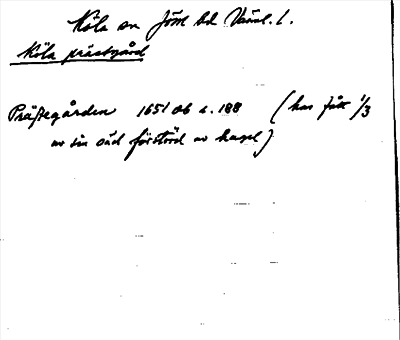 Köla sn Jöss hd Värml. l.
Köla prästgård
Prästegården 1651 ob s. 188 (har fått 1/3
av sin säd förstörd av hagel)